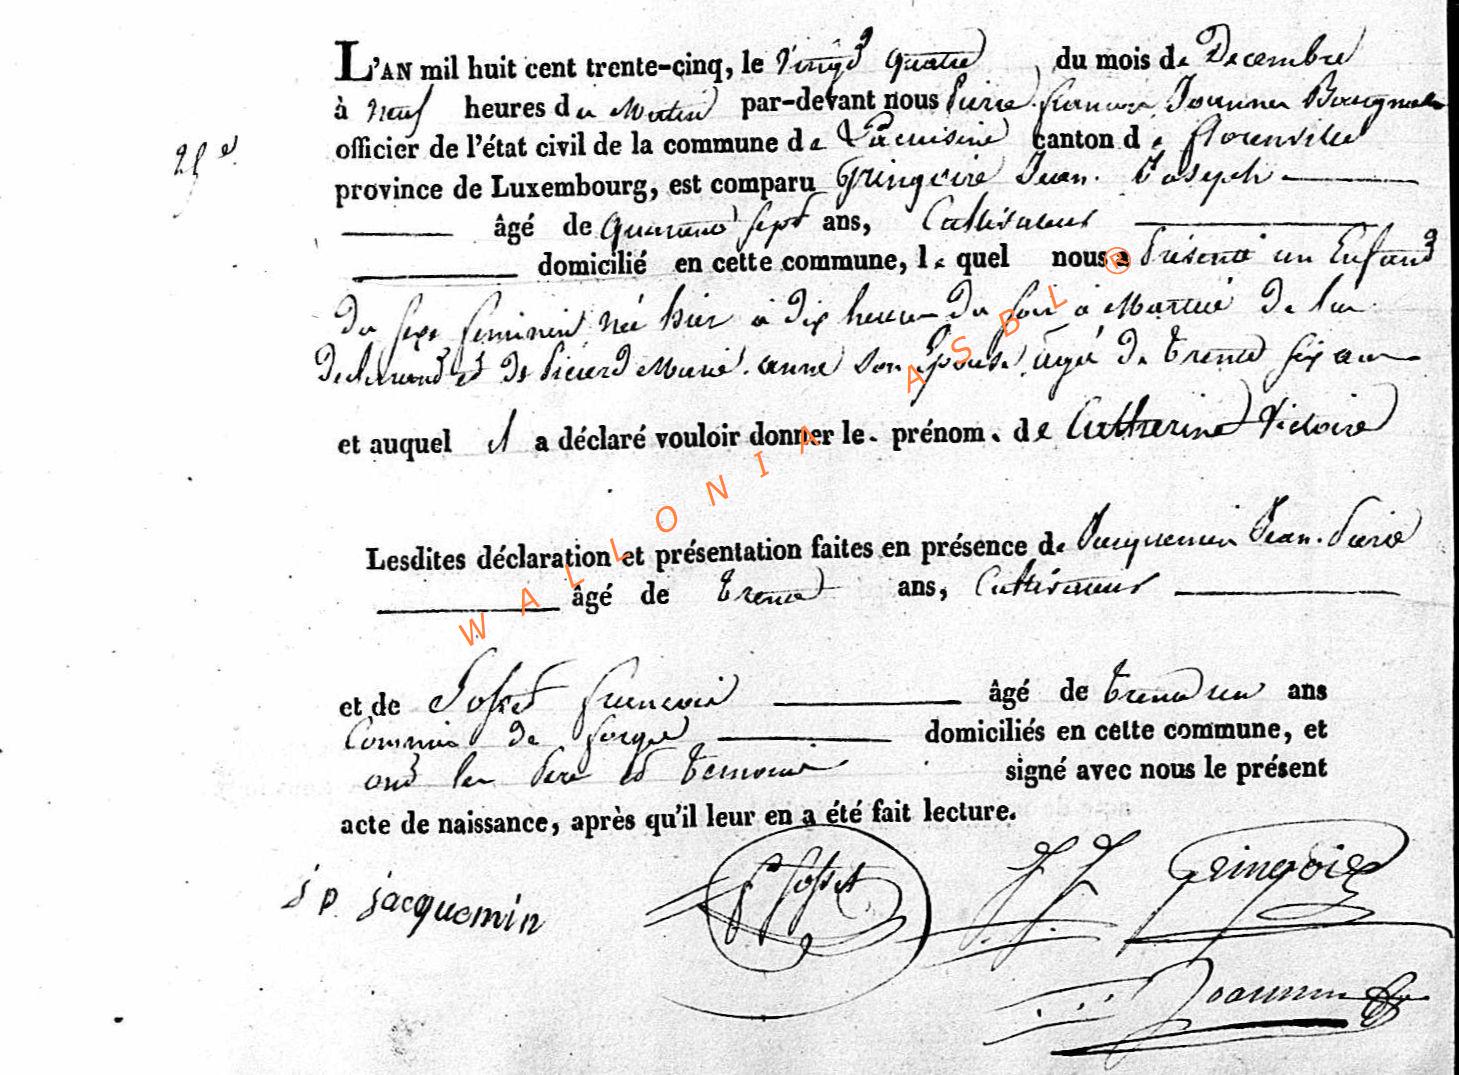 L'AN mil huit cent trente-cinq, le vingt quatre du mois de Decembre
à neuf heures du Matin par-devant nous Pierre francois Joannes
25e
officier de l'état civil de la commune de Lacuisine canton de florenville
province de Luxembourg, est comparu Gringoire Jean Joseph
âgé de quarante sept ans, Cultivateur
domicilié en cette commune, lequel nous a Présenté un Enfant
du sexe feminin né hier à dix heures du soir à Martué de lui
declarant et de Pierard Marie anne son Epouse agée de trente six ans
et auquel il a déclaré vouloir donner le prénom de Catharine Victoire
Lesdites déclaration et présentation faites en présence de Jacquemin Jean Pierre
âgé de trente ans, Cultivateur
et de Josset francois âgé de trente un ans
Commis de forge domiciliés en cette commune, et
ont les Pere et temoins signé avec nous le présent
acte de naissance, après qu'il leur en a été fait lecture.
j p jacquemin
f Josset
J J Gringoire
Joannes
WALLONIA ASBL ®